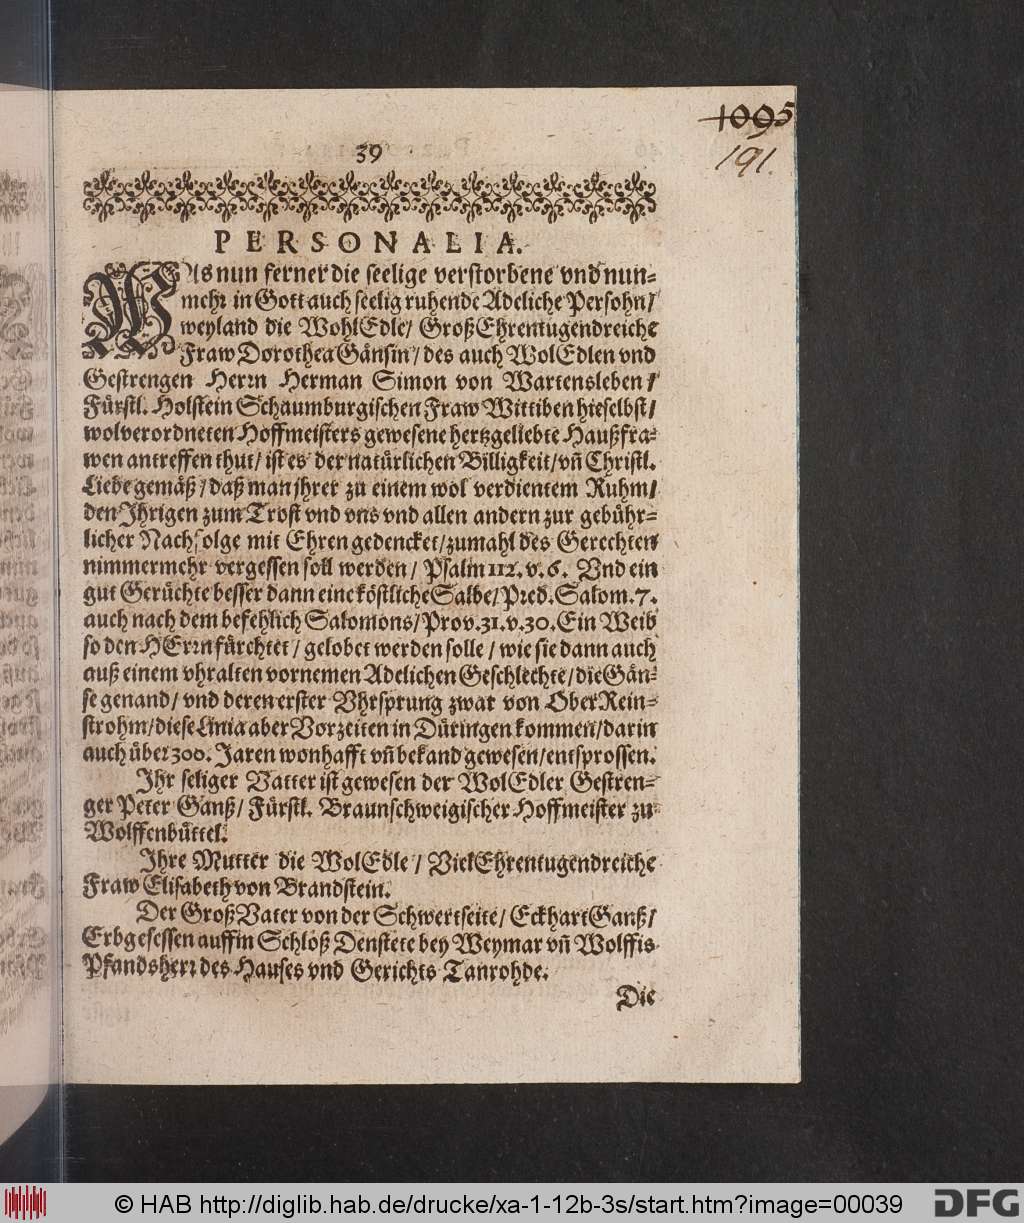 1095
191.
39
PERSONALIA.
Was nun ferner die seelige verstorbene vnd nun-
mehr in Gott auch seelig ruhende Adeliche Persohn/
weyland die WohlEdle/ GroßEhrentugendreiche
Fraw Dorothea Gänsin/ des auch WolEdlen vnd
Gestrengen Herrn Herman Simon von Wartensleben/
Fürstl. Holstein Schaumburgischen Fraw Wittiben hieselbst/
wolverordneten Hoffmeisters gewesene hertzgeliebte Haußfra-
wen antreffen thut/ ist es der natürlichen Billigkeit/ vñ Christl.
Liebe gemäß/ daß man jhrer zu einem wol verdientem Ruhm/
den Jhrigen zum Trost vnd vns vnd allen andern zur gebühr-
licher Nachfolge mit Ehren gedencket/ zumahl des Gerechten
nimmermehr vergessen soll werden/ Psalm 112. v. 6. Vnd ein
gut Gerüchte besser dann eine köstliche Salbe/ Pred. Salom. 7.
auch nach dem befehlich Salomons/ Prov. 31. v. 30. Ein Weib
so den HErrn fürchtet/ gelobet werden solle/ wie sie dann auch
auß einem vhralten vornemen Adelichen Geschlechte/ die Gän-
se genand/ vnd deren erster Vhrsprung zwar von Ober Rein-
strohm/ diese Linia aber Vorzeiten in Düringen kommen/ darin
auch über 300. Jaren wonhafft vñ bekand gewesen/ entsprossen.
Jhr seliger Vatter ist gewesen der WolEdler Gestren-
ger Peter Ganß/ Fürstl. Braunschweigischer Hoffmeister zu
Wolffenbüttel.
Jhre Mutter die WolEdle/ VielEhrentugendreiche
Fraw Elisabeth von Brandstein.
Der GroßVater von der Schwertseite/ Eckhart Ganß/
Erbgesessen auffm Schloß Denstete bey Weymar vñ Wolffis
Pfandsherr des Hauses vnd Gerichts Tanrohde.
Die
© HAB http://diglib.hab.de/drucke/xa-1-12b-3s/start.htm?image=00039
DFG